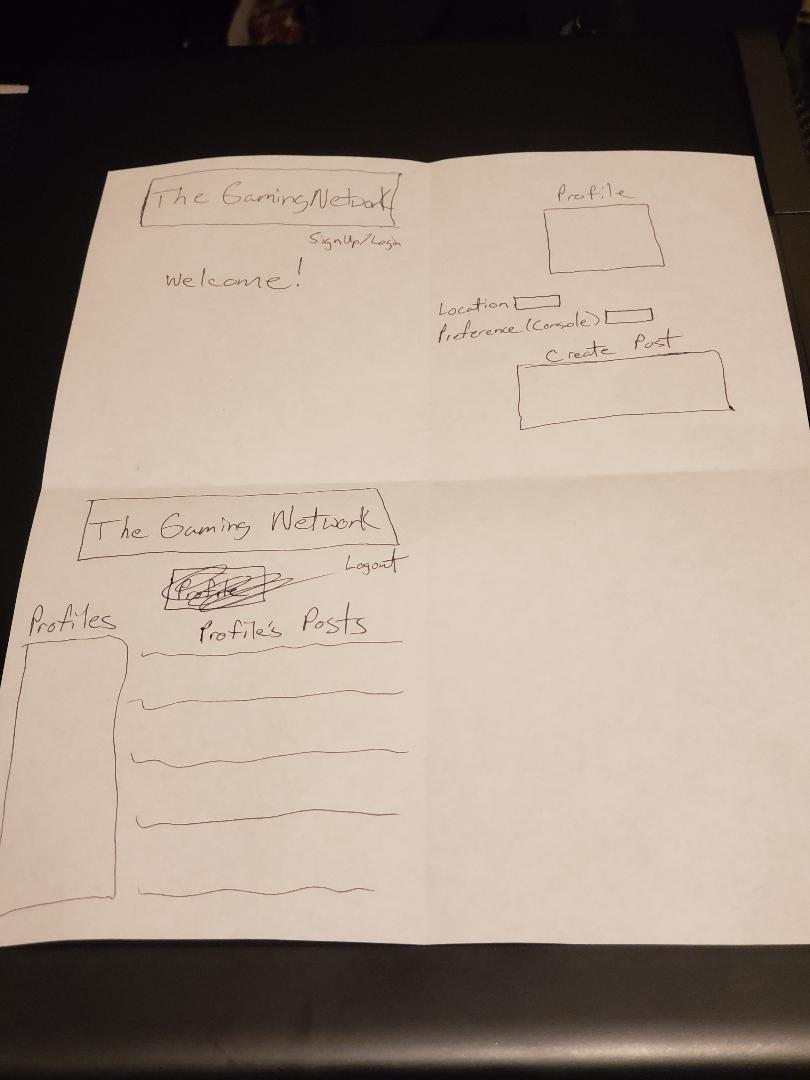 The Gaming Network
SignUp/Login
Welcome!
Profile
Location
Preference (Console)
Create Post
The Gaming Network
Logout
Profile
Profiles
Profile's Posts